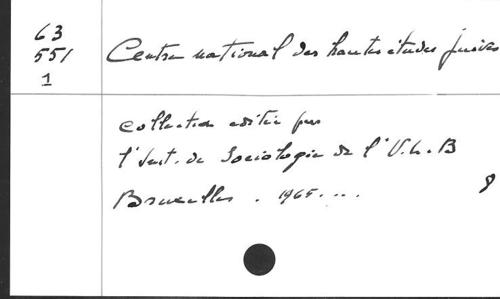 63
551
1
Centre national des hautes études juives
Collection editée par
l'Inst. de Sociologie de l'U.L.B
Bruxelles . 1965 ....
8